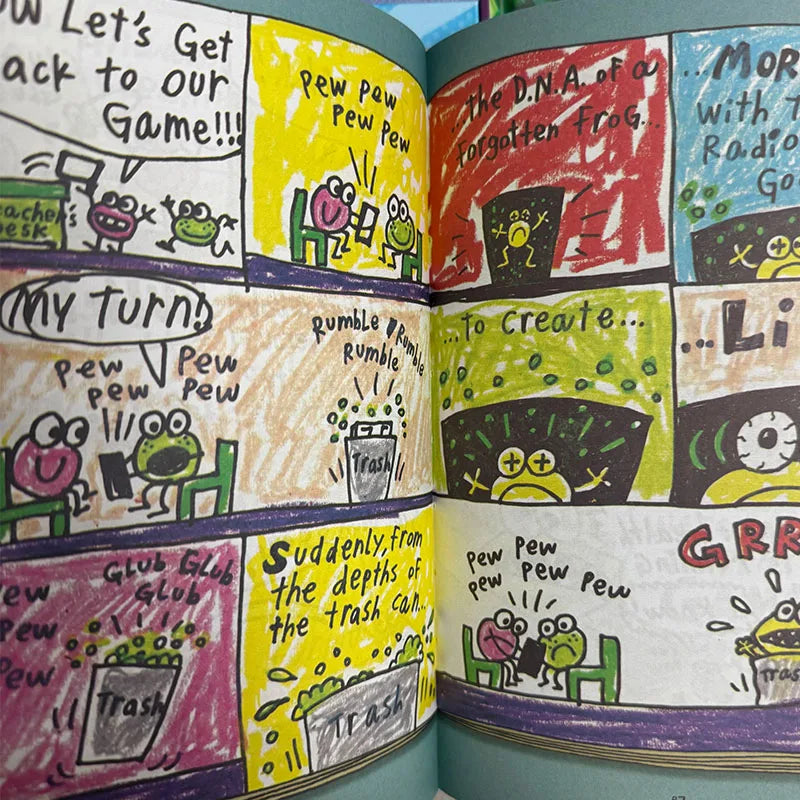 Let's Get
ack to our
Game!!!
eacher's
esk
Pew Pew
Pew Pew
My Turn!!
Pew Pew
Pew Pew
Rumble Rumble
Rumble
Trash
ew
Pew
Pew
Glub Glub
Glub
Trash
Suddenly, from
the depths of
the trash can...
Trash
...the D.N.A. of a
Forgotten Frog...
...Mor
with T
Radio
Go
...to create...
...Li
Pew Pew
Pew Pew Pew
GRR
Tras